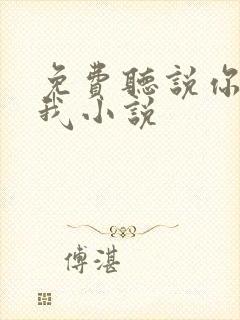 免費聽說你
我小說
傅湛